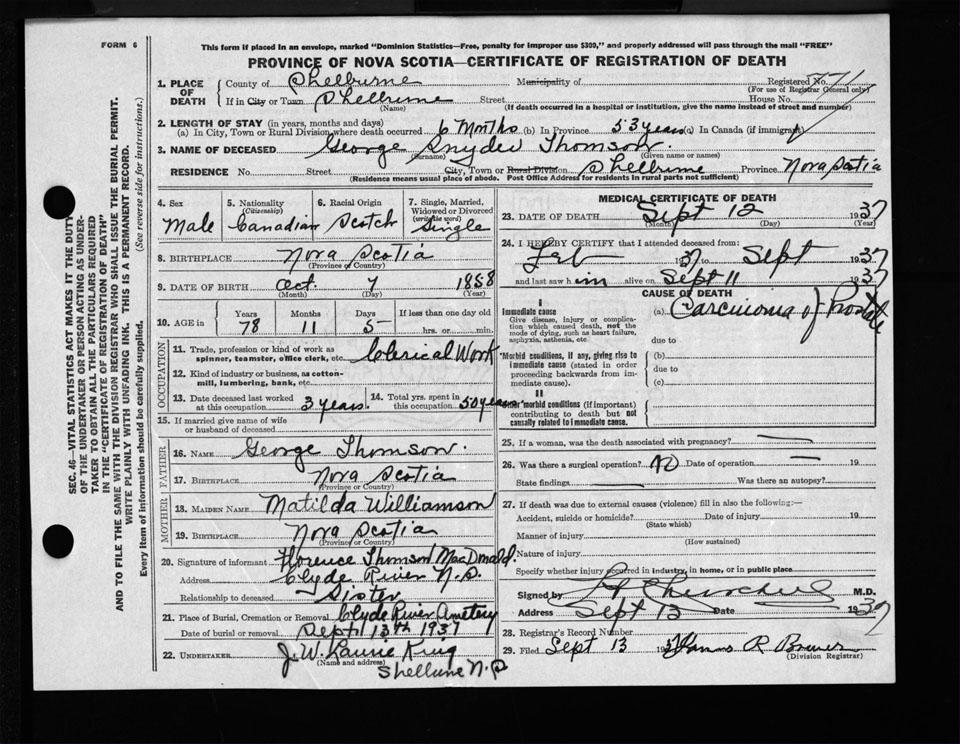 FORM 6
This form if placed in an envelope, marked "Dominion Statistics—Free, penalty for improper use $300," and properly addressed will pass through the mail "FREE"
PROVINCE OF NOVA SCOTIA—CERTIFICATE OF REGISTRATION OF DEATH
SEC. 46—VITAL STATISTICS ACT MAKES IT THE DUTY
OF THE UNDERTAKER OR PERSON ACTING AS UNDER-
TAKER TO OBTAIN ALL THE PARTICULARS REQUIRED
IN THE "CERTIFICATE OF REGISTRATION OF DEATH"
AND TO FILE THE SAME WITH THE DIVISION REGISTRAR WHO SHALL ISSUE THE BURIAL PERMIT.
WRITE PLAINLY WITH UNFADING INK. THIS IS A PERMANENT RECORD.
Every item of information should be carefully supplied. (See reverse side for instructions.)
1. PLACE OF DEATH
County of Shelburne Municipality of Registered No.
(For use of Registrar General only)
If in City or Town Shelburne Street House No.
(Name) (If death occurred in a hospital or institution, give the name instead of street and number)
2. LENGTH OF STAY (in years, months and days)
(a) In City, Town or Rural Division where death occurred 6 Months (b) In Province 53 years (c) In Canada (if immigrant)
3. NAME OF DECEASED George Snyder Thomson
(Surname) (Given name or names)
RESIDENCE No. Street City, Town or Rural Division Shelburne Province Nova Scotia
(Residence means usual place of abode. Post Office Address for residents in rural parts not sufficient)
4. Sex Male
5. Nationality (Citizenship) Canadian
6. Racial Origin Scotch
7. Single, Married, Widowed or Divorced (write the word) Single
8. BIRTHPLACE Nova Scotia
(Province or Country)
9. DATE OF BIRTH Oct. 7 1858
(Month) (Day) (Year)
10. AGE in Years 78 Months 11 Days 5 If less than one day old
hrs. or min.
OCCUPATION
11. Trade, profession or kind of work as spinner, teamster, office clerk, etc. Clerical Work
12. Kind of industry or business, as cotton-mill, lumbering, bank, etc.
13. Date deceased last worked at this occupation 3 years 14. Total yrs. spent in this occupation 50 years
15. If married give name of wife or husband of deceased
FATHER
16. NAME George Thomson
17. BIRTHPLACE Nova Scotia
(Province or Country)
MOTHER
18. MAIDEN NAME Matilda Williamson
19. BIRTHPLACE Nova Scotia
(Province or Country)
20. Signature of informant Florence Thomson MacDonald.
Address Clyde River N.S.
Relationship to deceased Sister
21. Place of Burial, Cremation or Removal Clyde River Cemetery
Date of burial or removal Sept 13th 1937
22. UNDERTAKER J. W. Laurie King
(Name and address)
Shelburne N.S
MEDICAL CERTIFICATE OF DEATH
23. DATE OF DEATH Sept 12 1937
(Month) (Day) (Year)
24. I HEREBY CERTIFY that I attended deceased from:
Feb 1937 to Sept 1937
and last saw him alive on Sept 11 1937
CAUSE OF DEATH
I
Immediate cause
Give disease, injury or complication which caused death, not the mode of dying, such as heart failure, asphyxia, asthenia, etc.
(a) Carcinoma of Prostate
due to
Morbid conditions, if any, giving rise to immediate cause (stated in order proceeding backwards from immediate cause).
(b)
due to
(c)
II
Other morbid conditions (if important) contributing to death but not causally related to immediate cause.
25. If a woman, was the death associated with pregnancy?
26. Was there a surgical operation? No Date of operation 19
State findings Was there an autopsy?
27. If death was due to external causes (violence) fill in also the following:—
Accident, suicide or homicide? Date of injury 19
(State which)
Manner of injury
(How sustained)
Nature of injury
Specify whether injury occurred in industry, in home, or in public place
Signed by M.D.
Address Sept 13 Date 1937
28. Registrar's Record Number
29. Filed Sept 13 19 R Brewer
(Division Registrar)